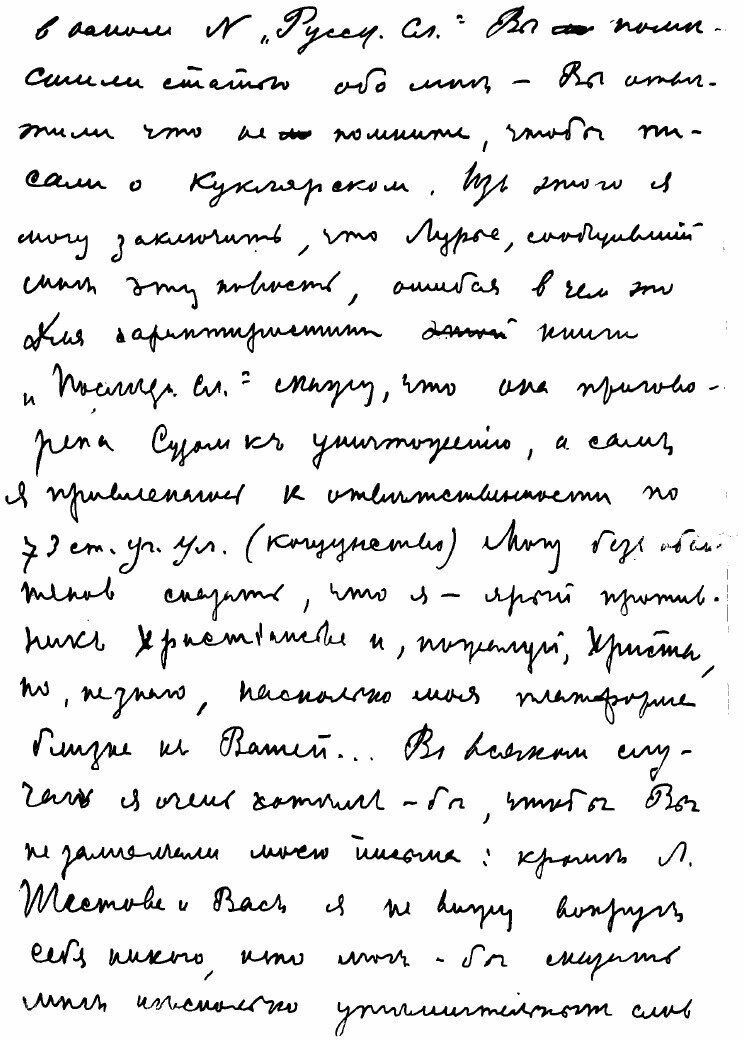 в каком N „Русск. Сл." Вы поме-
стили статью обо мнѣ – Вы отвѣ-
тили что не помните, чтобы пи-
сали о Куклярском. Изъ этого я
могу заключить, что Лурье, сообщивший
мнѣ эту новость, ошибся в чем то
Для характеристики этой книги
„Послѣд. Сл." скажу, что она пригово-
рена Судомъ къ уничтожению, а самъ
я привлекаюсь к отвѣтственности по
73 ст. уг. ул. (кощунство) Могу безъ оби-
няков сказать, что я – ярый против-
никъ Христiанства и, пожалуй, Христа,
но, не знаю, насколько моя платформа
близка къ Вашей... Во всяком слу-
чаѣ я очень хотѣлъ-бы, чтобы Вы
не замолчали моего письма: кромѣ Л.
Шестова и Васъ я не вижу вокругъ
себя никого, кто могъ-бы сказать
мнѣ нѣсколько утѣшительных слов